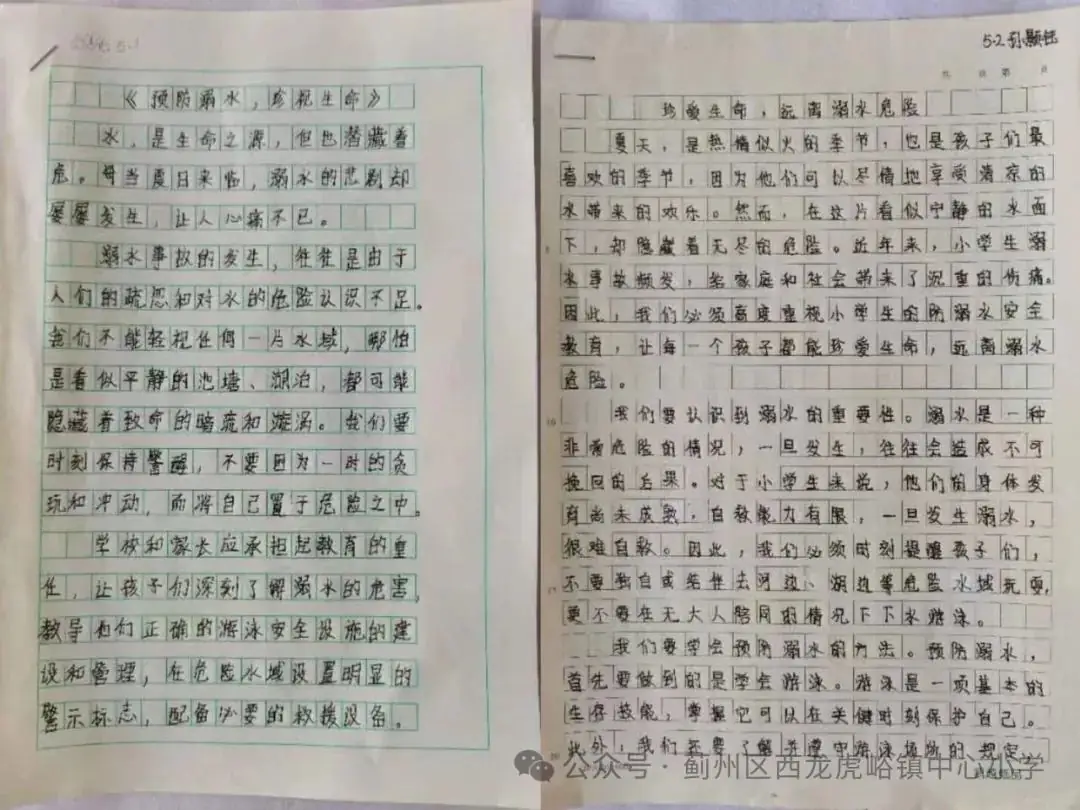 5.1
《预防溺水，珍视生命》
水，是生命之源，但也潜藏着
虎。每当夏日来临，溺水的悲剧却
屡屡发生，让人心痛不已。
溺水事故的发生，往往是由于
人们的疏忽和对水的危险认识不足。
我们不能轻视任何一片水域，哪怕
是看似平静的池塘、湖泊，都可能
隐藏着致命的暗流和漩涡。我们要
时刻保持警醒，不要因为一时的贪
玩和冲动，而将自己置于危险之中。
学校和家长应承担起教育的重
任，让孩子们深刻了解溺水的危害，
教导他们正确的游泳安全设施的建
设和管理，在危险水域设置明显的
警示标志，配备必要的救援设备。
5.2
共 页 第 页
珍爱生命，远离溺水危险
夏天，是热情似火的季节，也是孩子们最
喜欢的季节，因为他们可以尽情地享受清凉的
水带来的欢乐。然而，在这片看似宁静的水面
下，却隐藏着无尽的危险。近年来，小学生溺
水事故频发，给家庭和社会带来了沉重的伤痛。
因此，我们必须高度重视小学生的防溺水安全
教育，让每一个孩子都能珍爱生命，远离溺水
危险。
我们要认识到溺水的重要性。溺水是一种
非常危险的情况，一旦发生，往往会造成不可
挽回的后果。对于小学生来说，他们的身体发
育尚未成熟，自救能力有限，一旦发生溺水，
很难自救。因此，我们必须时刻提醒孩子们，
不要独自或结伴去河边、湖边等危险水域玩耍，
更不要在无大人陪同的情况下下水游泳。
我们要学会预防溺水的方法。预防溺水，
首先要做到的是学会游泳。游泳是一项基本的
生存技能，掌握它可以在关键时刻保护自己。
此外，我们还要了解并遵守游泳场所的规定，
公众号·蓟州区西龙虎峪镇中心小学